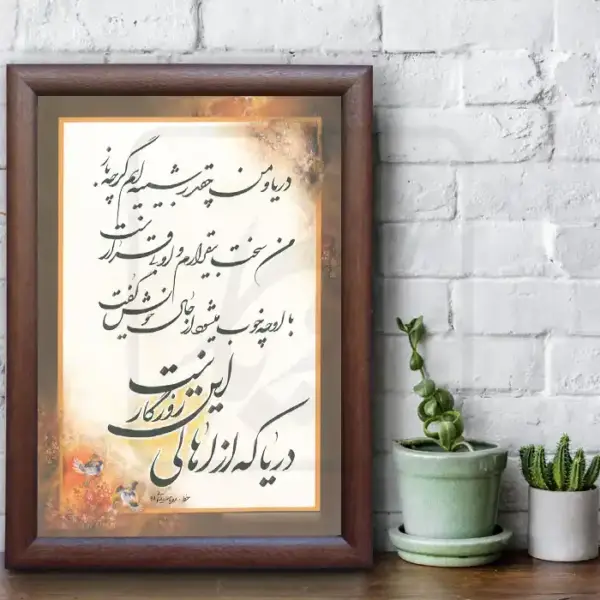 دریا و من چقدر شبیهیم گرچه باز
من سخت بیقرارم و او بیقرار نیست
با او چه خوب میشود از حال خویش گفت
دریا که از اهالی این روزگار نیست